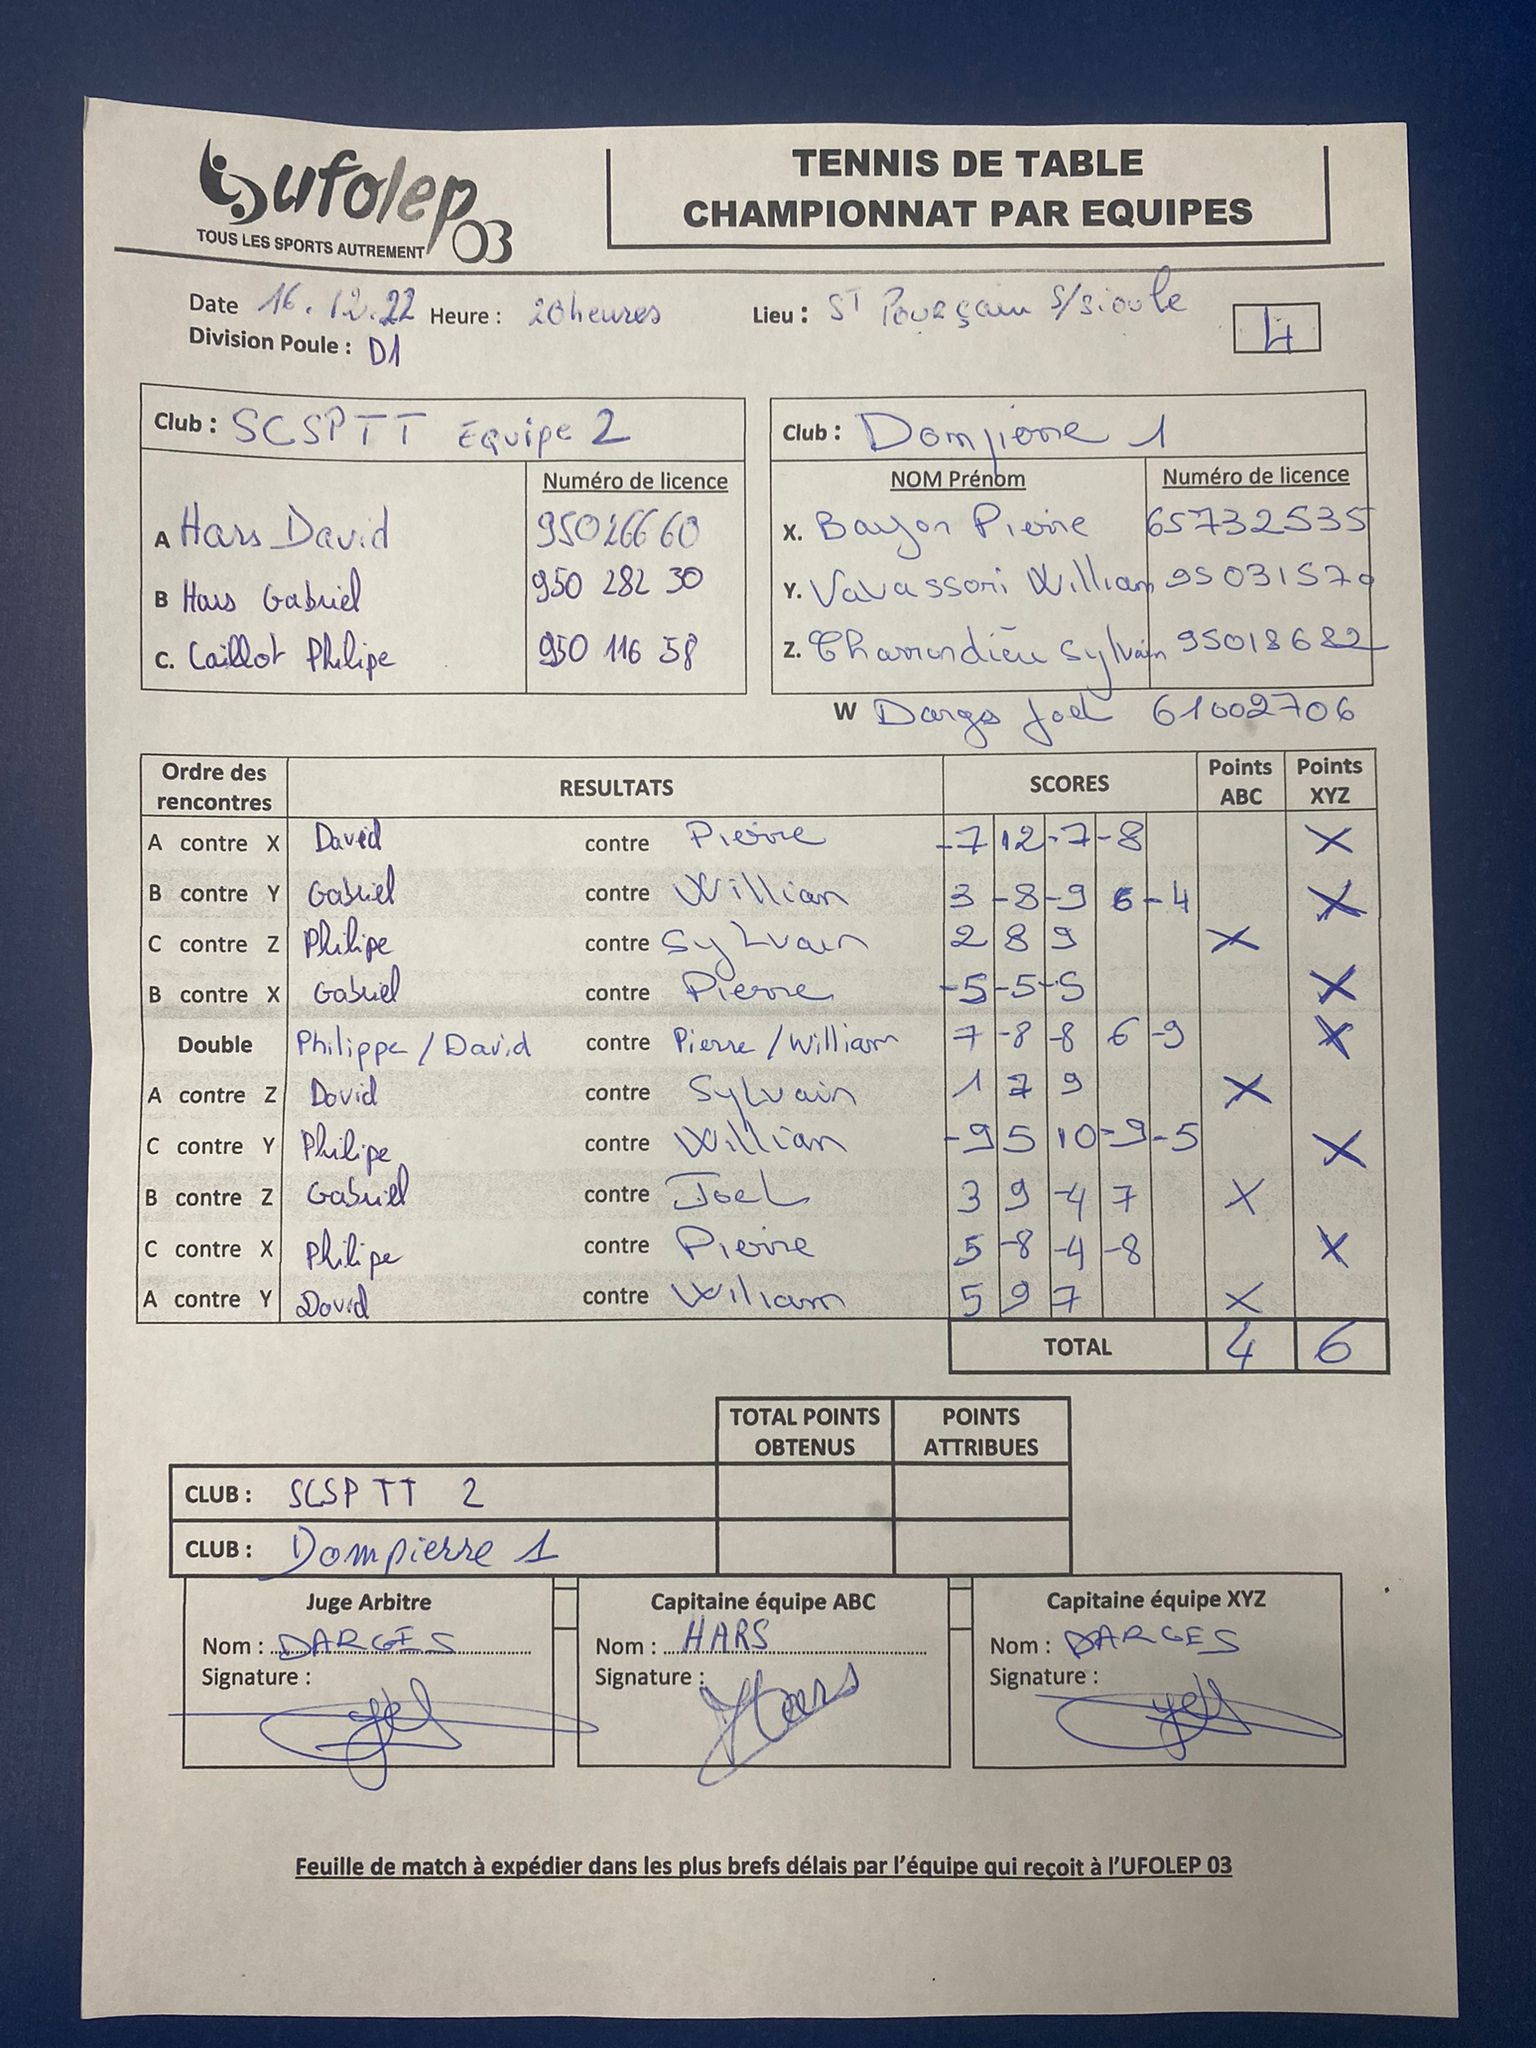 ufolep 03
TOUS LES SPORTS AUTREMENT
TENNIS DE TABLE
CHAMPIONNAT PAR EQUIPES
Date 16.12.22 Heure : 20heures Lieu : ST Pourçain S/sioule
Division Poule : D1
4
Club : SCSPTT Equipe 2
Numéro de licence
A Hars David 95026660
B Hars Gabriel 950 282 30
C. Caillot Philipe 950 116 58
Club : Dompierre 1
NOM Prénom Numéro de licence
X. Bayon Pierre 65732535
Y. Vavassori William 95031570
Z. Sylvain 95018682
W Darges Joel 61002706
Ordre des rencontres RESULTATS SCORES Points ABC Points XYZ
A contre X David contre Pierre -7 12 -7 -8 X
B contre Y Gabriel contre William 3 -8 -9 6 -4 X
C contre Z Philipe contre Sylvain 2 8 9 X
B contre X Gabriel contre Pierre -5 -5 -5 X
Double Philippe / David contre Pierre / William 7 -8 -8 6 -9 X
A contre Z David contre Sylvain 1 7 9 X
C contre Y Philipe contre William -9 5 10 -9 -5 X
B contre Z Gabriel contre Joel 3 9 -4 7 X
C contre X Philipe contre Pierre 5 -8 -4 -8 X
A contre Y David contre William 5 9 7 X
TOTAL 4 6
TOTAL POINTS OBTENUS POINTS ATTRIBUES
CLUB : SCSP TT 2
CLUB : Dompierre 1
Juge Arbitre
Nom : DARGES
Signature :
Capitaine équipe ABC
Nom : HARS
Signature : Hars
Capitaine équipe XYZ
Nom : DARGES
Signature :
Feuille de match à expédier dans les plus brefs délais par l'équipe qui reçoit à l'UFOLEP 03